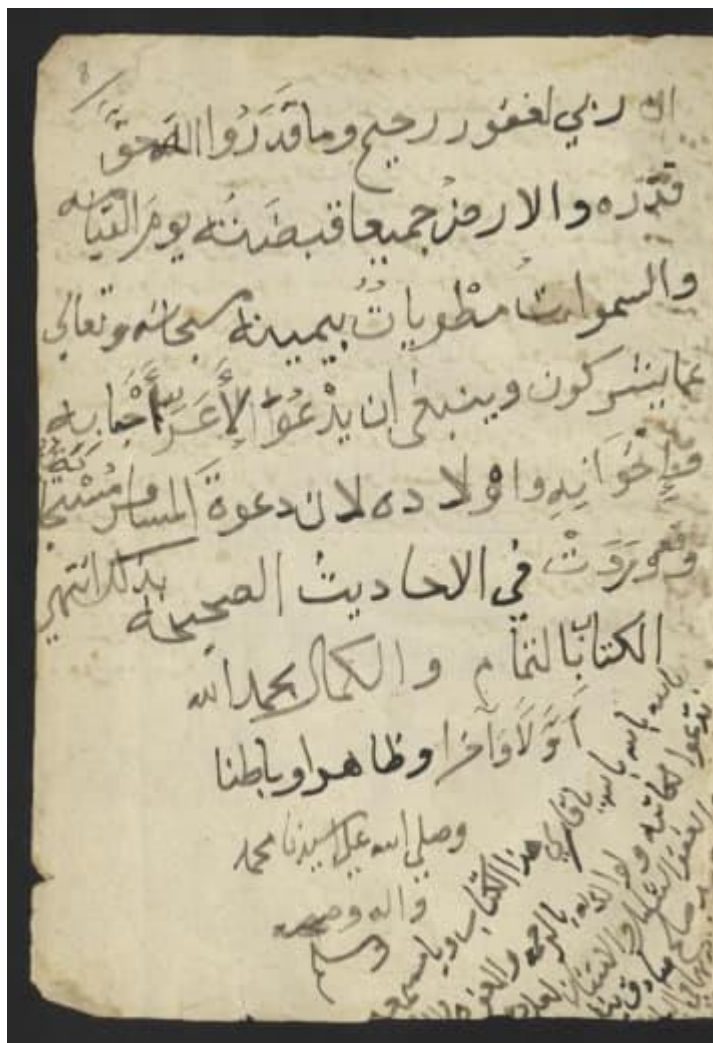 8
ان ربي لغفور رحيم وما قَدَرُوا الله حقَّ
قدْره والارضُ جميعا قبضَتُه يومَ القيامه
والسمواتُ مطوياتُ بيمينه سبحانه وتعالى
عما يشركون وينبغي ان يدْعُوا لِأَعَزِّ أَحْبَابِه
وَإِخْوَانِهِ واوْلاده لان دعوةَ المسافر مُسْتَجَابَةٌ
وَقَدْ وَرَدَتْ في الاحاديثُ الصحيحه بذلك انتهى
الكتاب بالتمام والكمال بحمد الله
أَوَّلًا وَآخرا وظاهرا وباطنا
وصلي الله على سيدنا محمد
واله وصحبه
وسلم
بالله بالله بالله يا قاري هذا الكتاب ويا مستمعه
تدعوا لكاتبه ولوالديه بالرحمه والمغفره